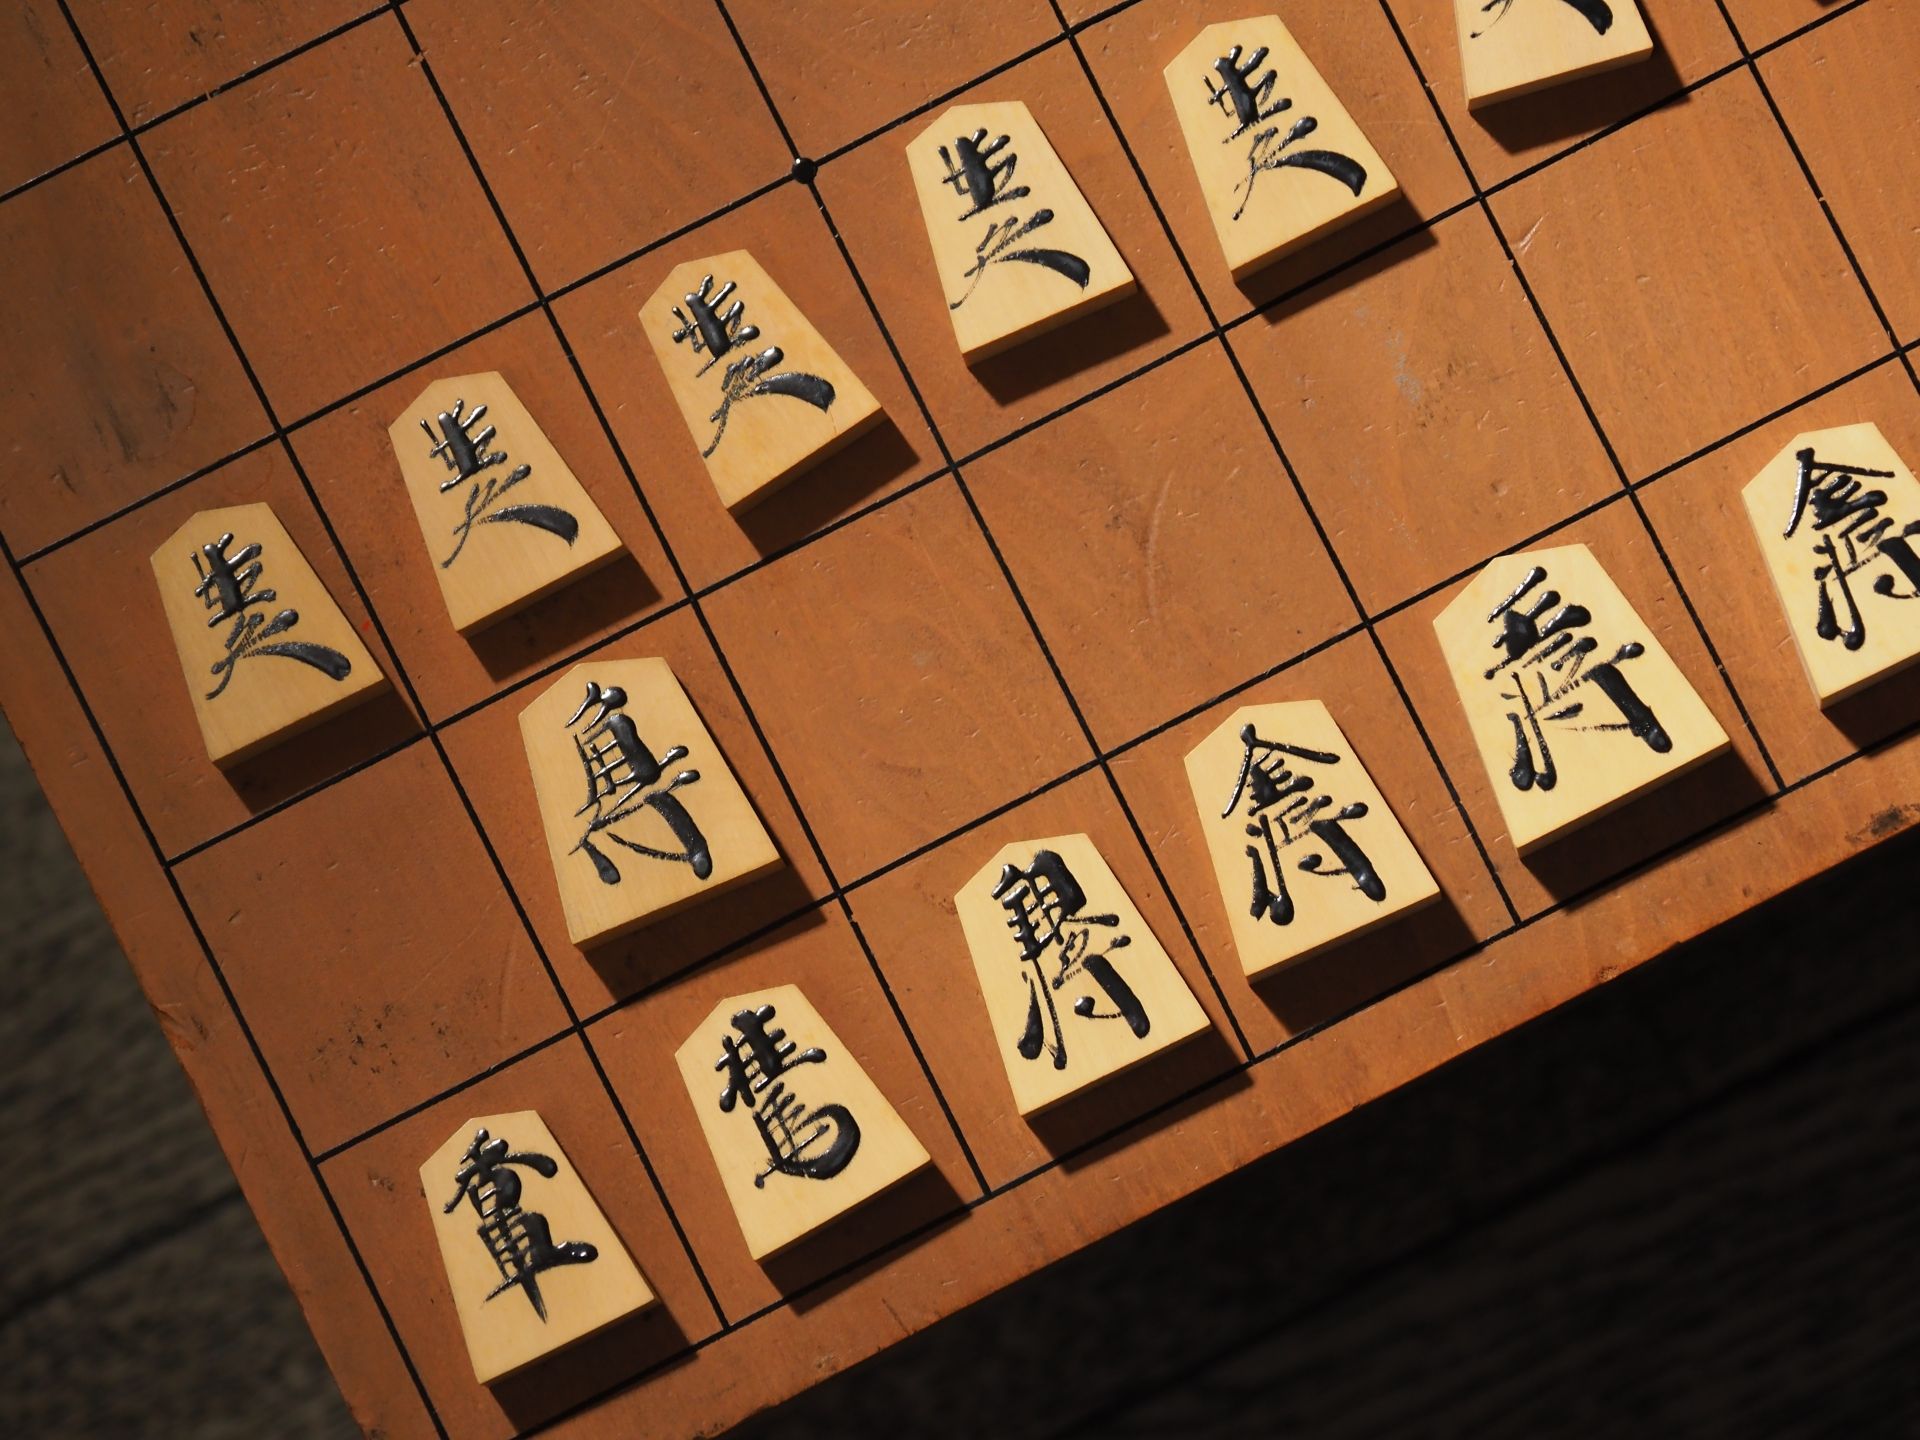 歩兵
歩兵
歩兵
歩兵
歩兵
角行
香車
桂馬
銀将
金将
王将
金将